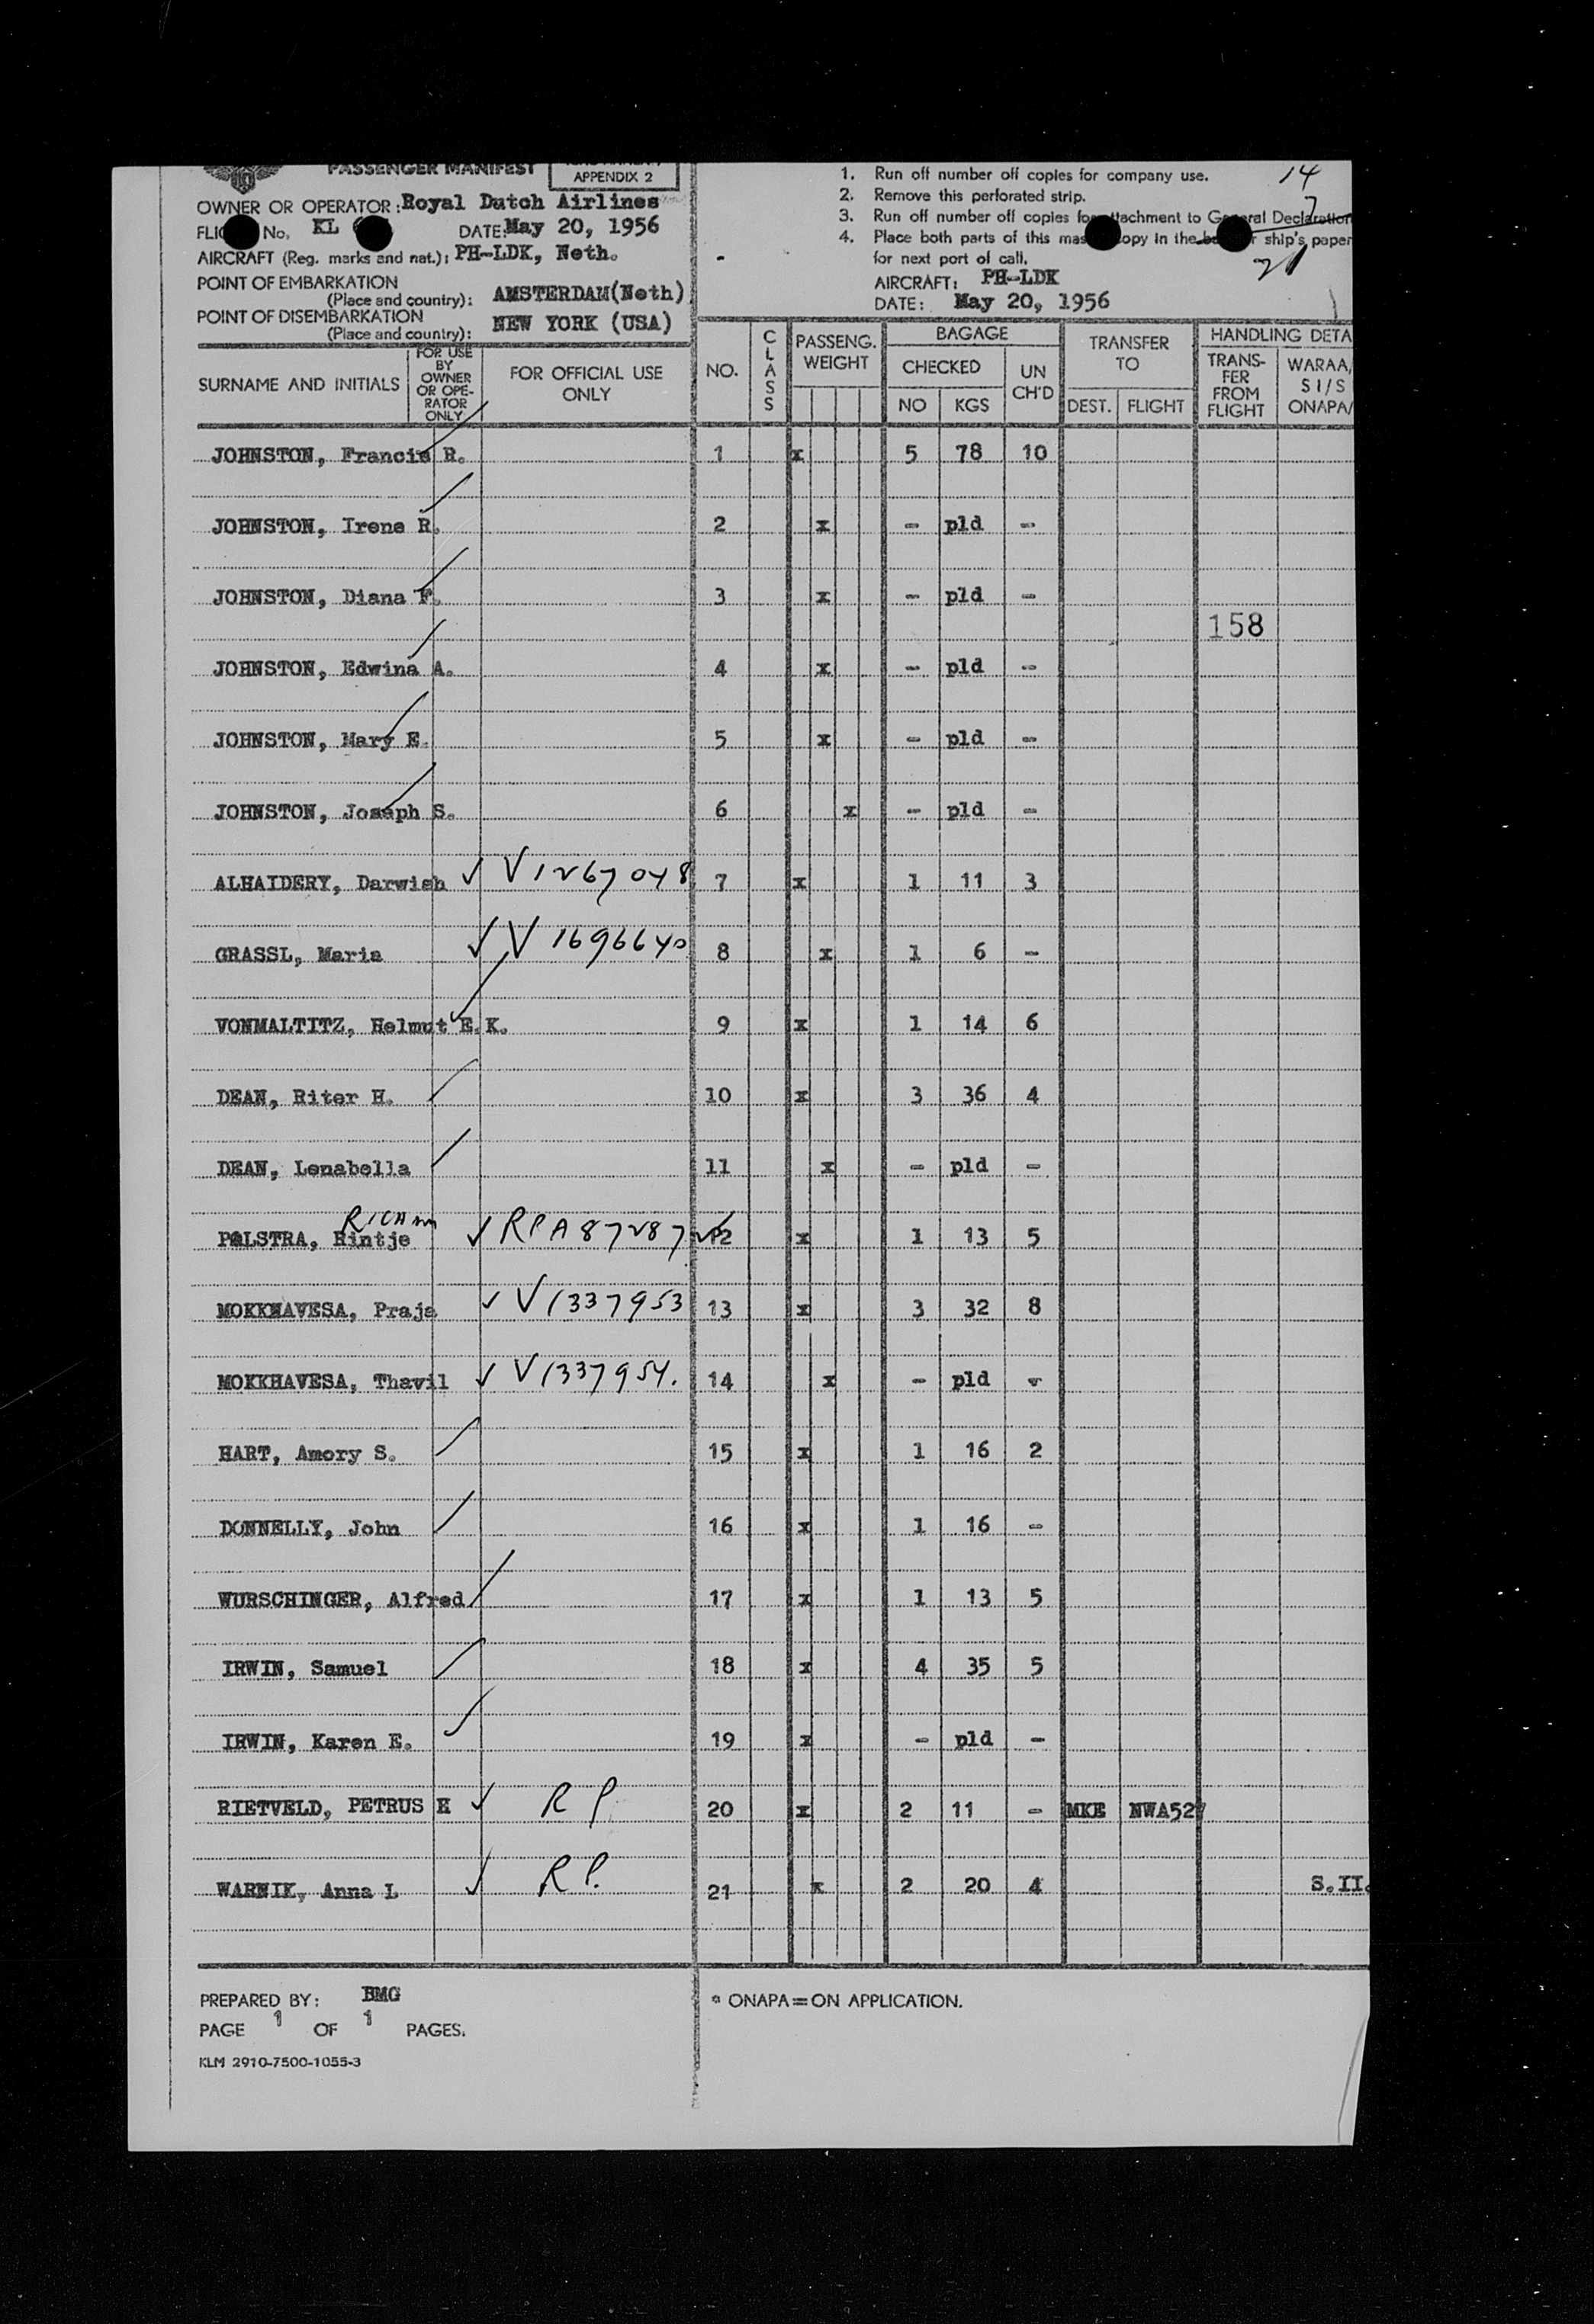 PASSENGER MANIFEST
APPENDIX 2
OWNER OR OPERATOR: Royal Dutch Airlines
No. KL DATE: May 20, 1956
AIRCRAFT (Reg. marks and nat.): PH-LDK, Neth.
POINT OF EMBARKATION
(Place and country): AMSTERDAM(Neth)
POINT OF DISEMBARKATION
(Place and country): NEW YORK (USA)
1. Run off number off copies for company use.
2. Remove this perforated strip.
3. Run off number off copies for attachment to General Declaration
4. Place both parts of this copy in the ship's paper
for next port of call.
AIRCRAFT: PH-LDK
DATE: May 20, 1956
14
7
21
SURNAME AND INITIALS
FOR USE BY OWNER OR OPE-RATOR ONLY
FOR OFFICIAL USE ONLY
NO.
CLASS
PASSENG. WEIGHT
BAGAGE
CHECKED
NO KGS
UN CH'D
TRANSFER TO
DEST. FLIGHT
HANDLING DETA
TRANS-FER FROM FLIGHT
WARAA/ SI/S ONAPA/
JOHNSTON, Francis R. 1 x 5 78 10
JOHNSTON, Irene R. 2 x - pld -
JOHNSTON, Diana F. 3 x - pld -
158
JOHNSTON, Edwina A. 4 x - pld -
JOHNSTON, Mary E. 5 x - pld -
JOHNSTON, Joseph S. 6 x - pld -
ALHAIDERY, Darwish V1267048 7 x 1 11 3
GRASSL, Maria V1696640 8 x 1 6 -
VONMALTITZ, Helmut E.K. 9 x 1 14 6
DEAN, Riter H. 10 x 3 36 4
DEAN, Lenabella 11 x - pld -
PALSTRA, Rintje 12 x 1 13 5
MOKKHAVESA, Praja V1337953 13 x 3 32 8
MOKKHAVESA, Thavil V1337954. 14 x - pld -
HART, Amory S. 15 x 1 16 2
DONNELLY, John 16 x 1 16 -
WURSCHINGER, Alfred 17 x 1 13 5
IRWIN, Samuel 18 x 4 35 5
IRWIN, Karen E. 19 x - pld -
RIETVELD, PETRUS H RP. 20 x 2 11 - MKE NWA527
WARNIK, Anna L RP. 21 x 2 20 4 S.II.
PREPARED BY: BMG
PAGE 1 OF 1 PAGES.
KLM 2910-7500-1055-3
* ONAPA=ON APPLICATION.